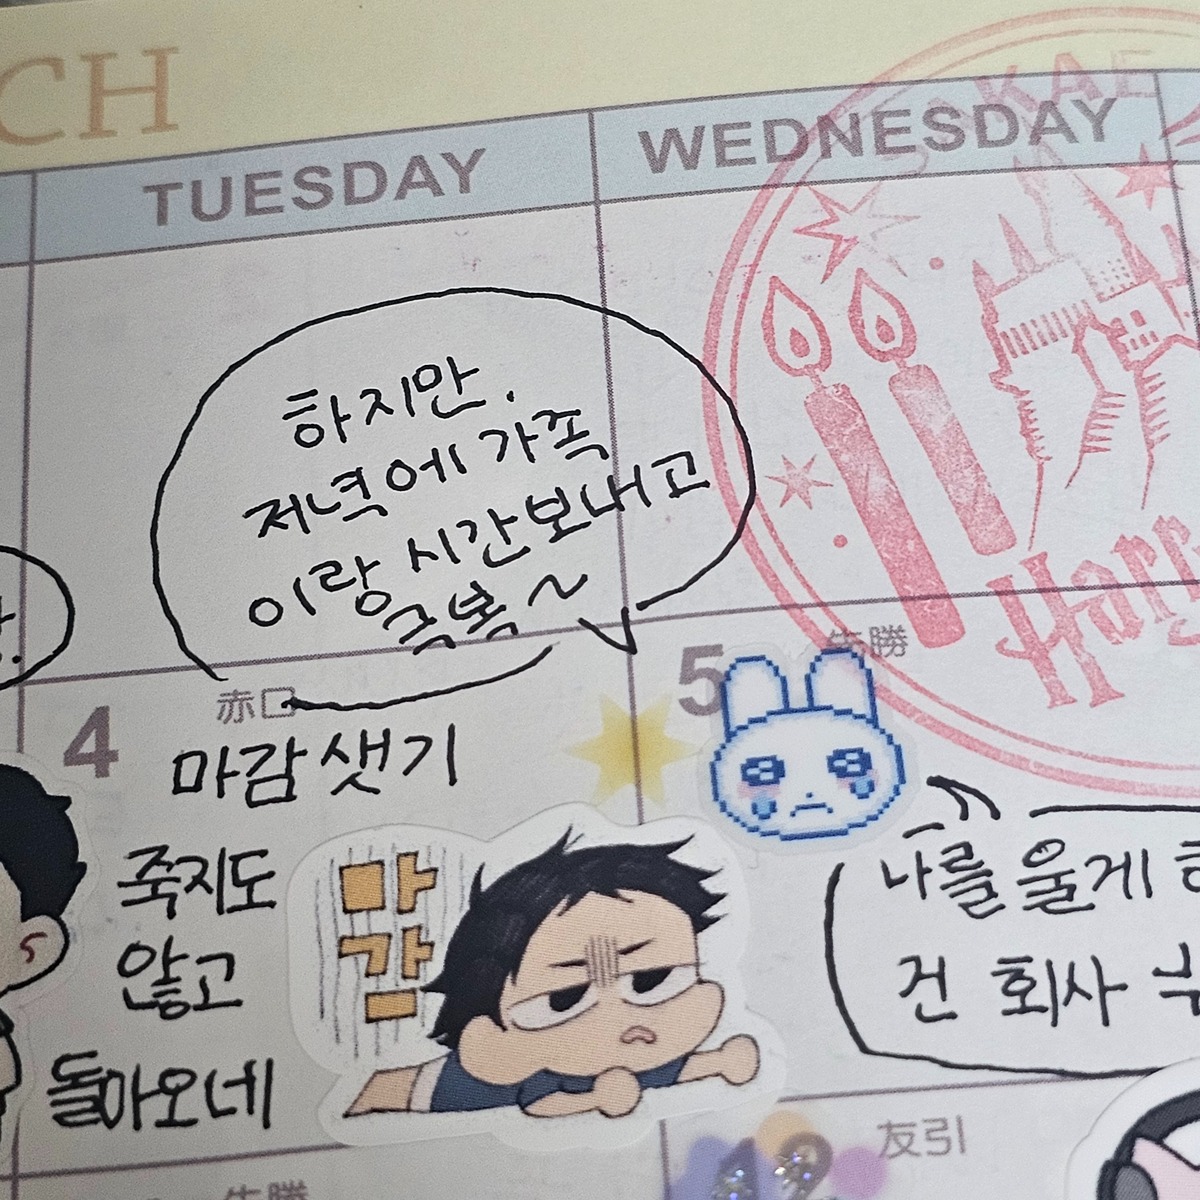 CH
TUESDAY
WEDNESDAY
SAKAE
하지만.
저녁에 가족
이랑 시간보내고
극복~
Harr
4
赤口
마감 샛기
죽지도
않고
돌아오네
마
감
5
先勝
나를 울게
건 회사
友引
12
先勝